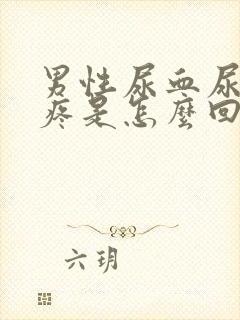 男性尿血尿
疼是怎麼回
六玥